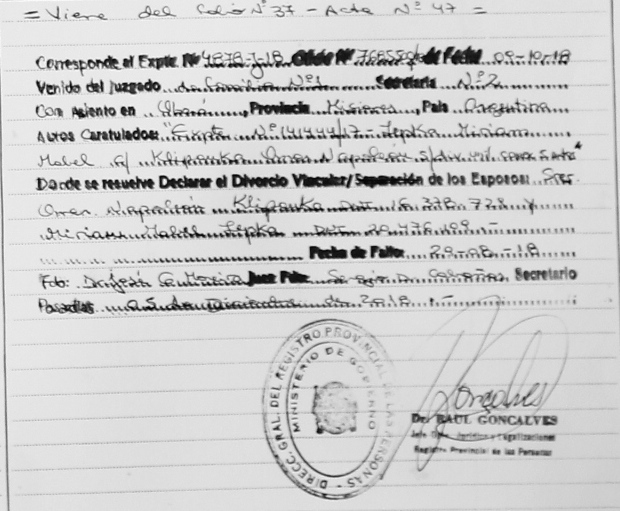 = Viene del Folio Nº 37 - Acta Nº 47 =
Corresponde al Expte. Nº 4878-J-18 Oficio Nº de Fecha 09-10-18
Venido del Juzgado de Familia Nº1 Secretaría Nº2
Con Asiento en Oberá, Provincia Misiones, País Argentina
Autos Caratulados: "Expte Nº 141444/17 - Zepka Miriam
Mabel c/ Klipauka Omar Napoleón s/div.
Donde se resuelve Declarar el Divorcio Vincular/Separación de los Esposos: Sres.
Omar Napoleón Klipauka DNI 16.378.728 y
Miriam Mabel Zepka DNI 20.476.109 -
Fecha de Fallo: 29-08-18
Fdo: Juez Fdo: Sergio D. Secretario
Posadas de 2018 -
DIRECC. GRAL. DEL REGISTRO PROVINCIAL DE LAS PERSONAS
MINISTERIO DE GOBIERNO
Goncalves
Dr. RAUL GONCALVES
Jefe Dpto. Jurídico y Legalizaciones
Registro Provincial de las Personas